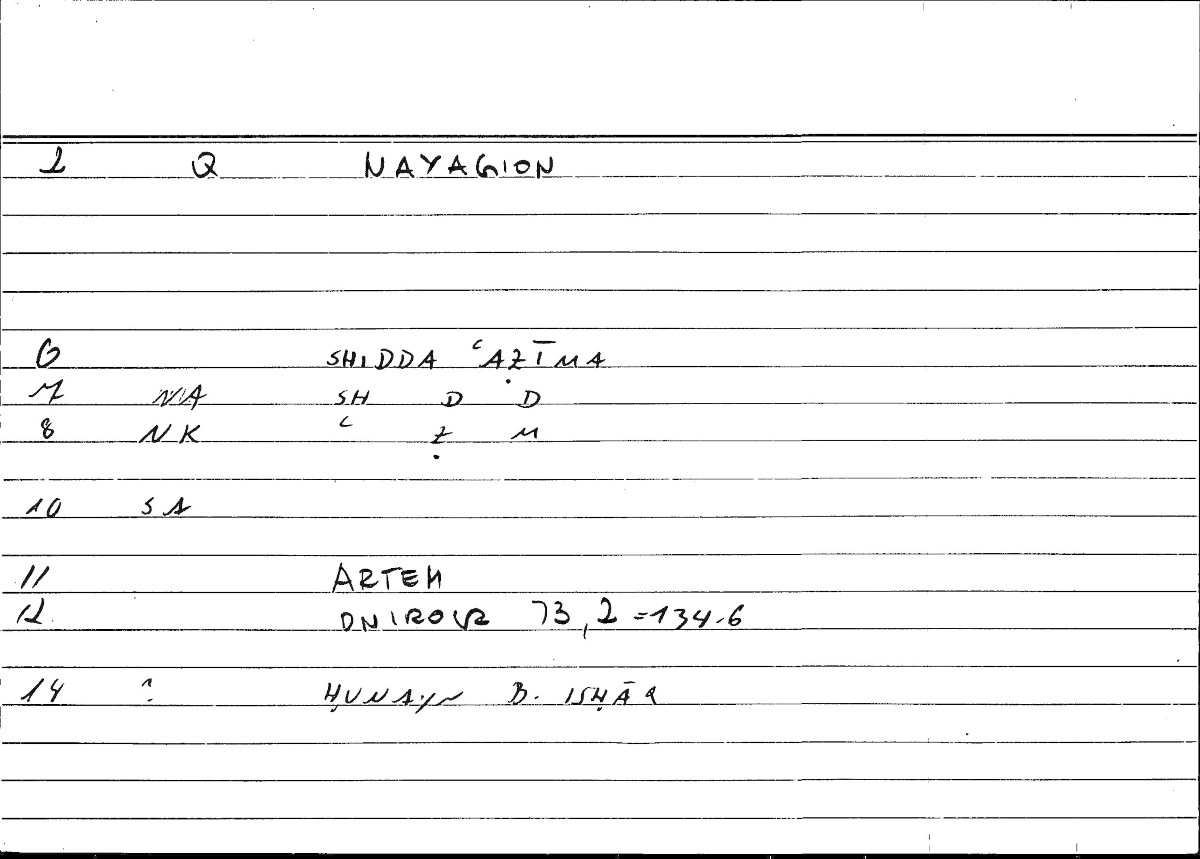 1 Q NAYAGION
6 SHIDDA ʿAẒĪMA
7 NA SH D D
8 NK ʿ Ẓ M
10 SA
11 ARTEM
12 ONIROCR 73,2 =134.6
14 ? ḤUNAYN B. ISḤĀQ